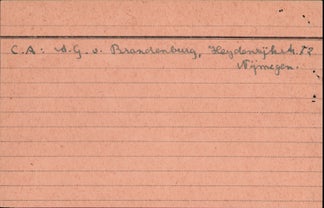 C.A: A.G. v. Brandenburg, Heydenrijckstr. 52
Nijmegen.